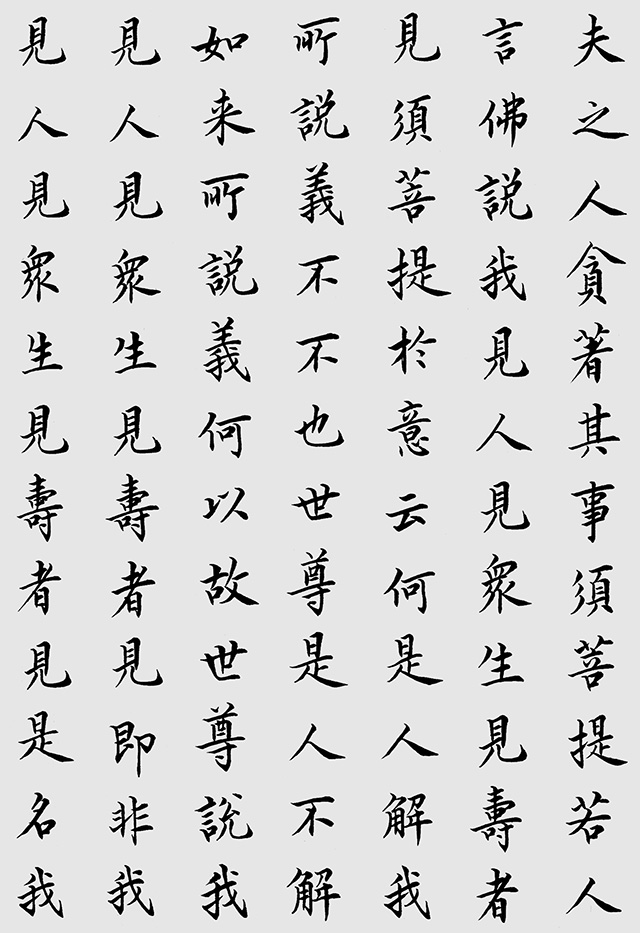 夫之人貪著其事須菩提若人
言佛說我見人見眾生見壽者
見須菩提於意云何是人解我
所說義不不也世尊是人不解
如来所說義何以故世尊說我
見人見眾生見壽者見即非我
見人見眾生見壽者見是名我